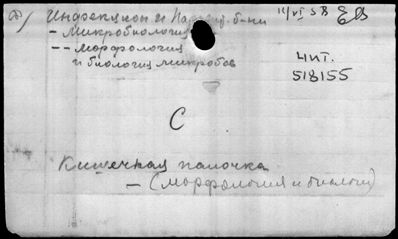 а) Инфекцион. и Параз. б-ни
- Микробиология
-- морфология
и биология микробов
11/VI 5 В
чит.
518155
С
Кишечная палочка
- (морфология и биология)